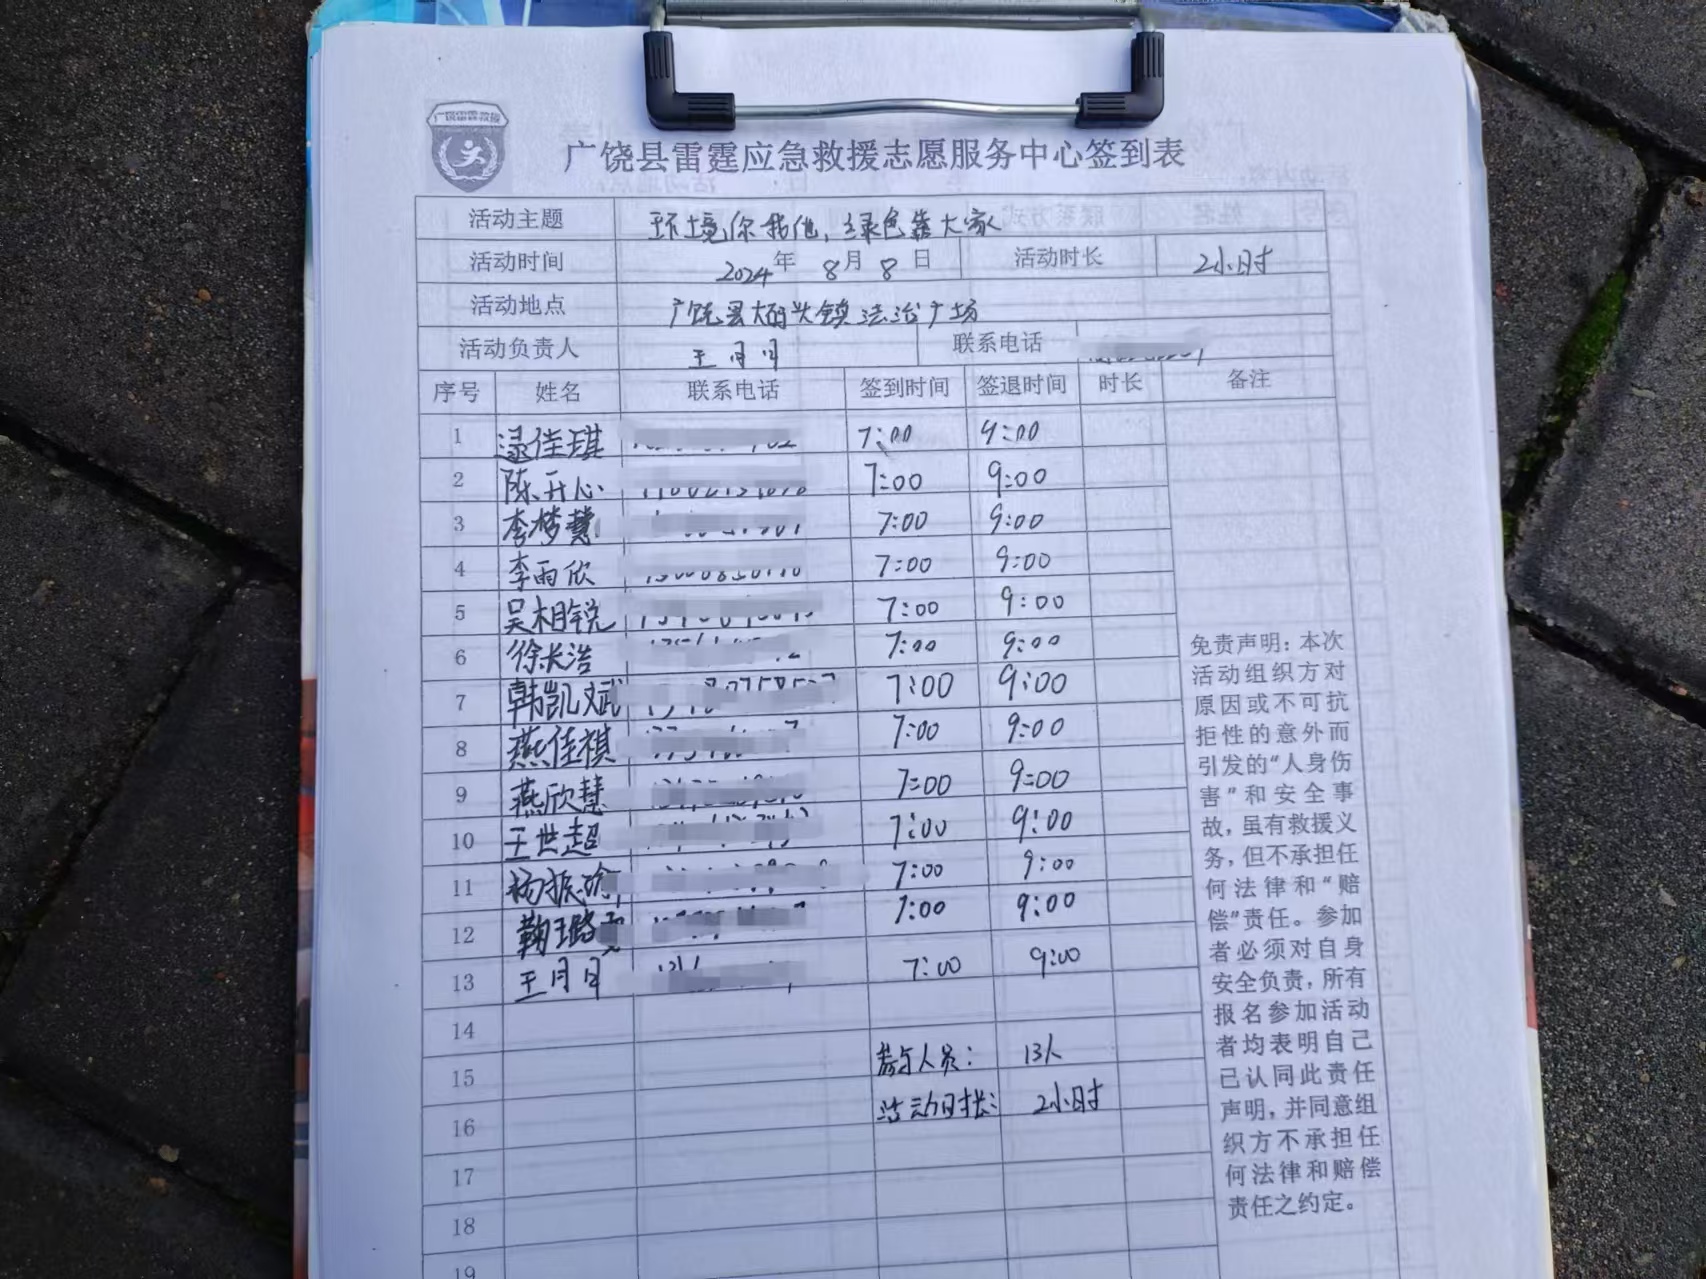 广饶雷霆救援
广饶县雷霆应急救援志愿服务中心签到表
活动主题 环境你我他，绿色靠大家
活动时间 2024年 8月 8日 活动时长 2小时
活动地点 广饶县大码头镇法治广场
活动负责人 王月月 联系电话
序号 姓名 联系电话 签到时间 签退时间 时长 备注
1 逯佳琪 7:00 9:00
2 陈开心 7:00 9:00
3 李梦慧 7:00 9:00
4 李雨欣 7:00 9:00
5 吴相锐 7:00 9:00
6 徐长浩 7:00 9:00
7 韩凯斌 7:00 9:00
8 燕佳祺 7:00 9:00
9 燕欣慧 7:00 9:00
10 王世超 7:00 9:00
11 杨振 7:00 9:00
12 鞠璐 7:00 9:00
13 王月月 7:00 9:00
14
15 参与人员： 13人
16 活动时长： 2小时
17
18
19
免责声明：本次
活动组织方对
原因或不可抗
拒性的意外而
引发的“人身伤
害”和安全事
故，虽有救援义
务，但不承担任
何法律和“赔
偿”责任。参加
者必须对自身
安全负责，所有
报名参加活动
者均表明自己
已认同此责任
声明，并同意组
织方不承担任
何法律和赔偿
责任之约定。